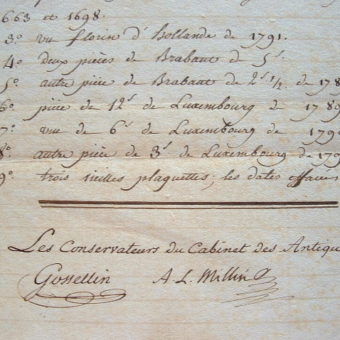 1663 et 1698.
3º un florin d'hollande de 1791.
4º deux pièces de Brabant de 5ˢ.
5º autre pièce de Brabant de 2ˢ ½ de 178
6º pièce de 12ˢ de Luxembourg de 178
7º une de 6ˢ de Luxembourg de 179
8º autre pièce de 3ˢ de Luxembourg de 179
9º trois vieilles plaquettes; les dates effacées
Les Conservateurs du Cabinet des Antiqu
Gossellin A. L. Millin